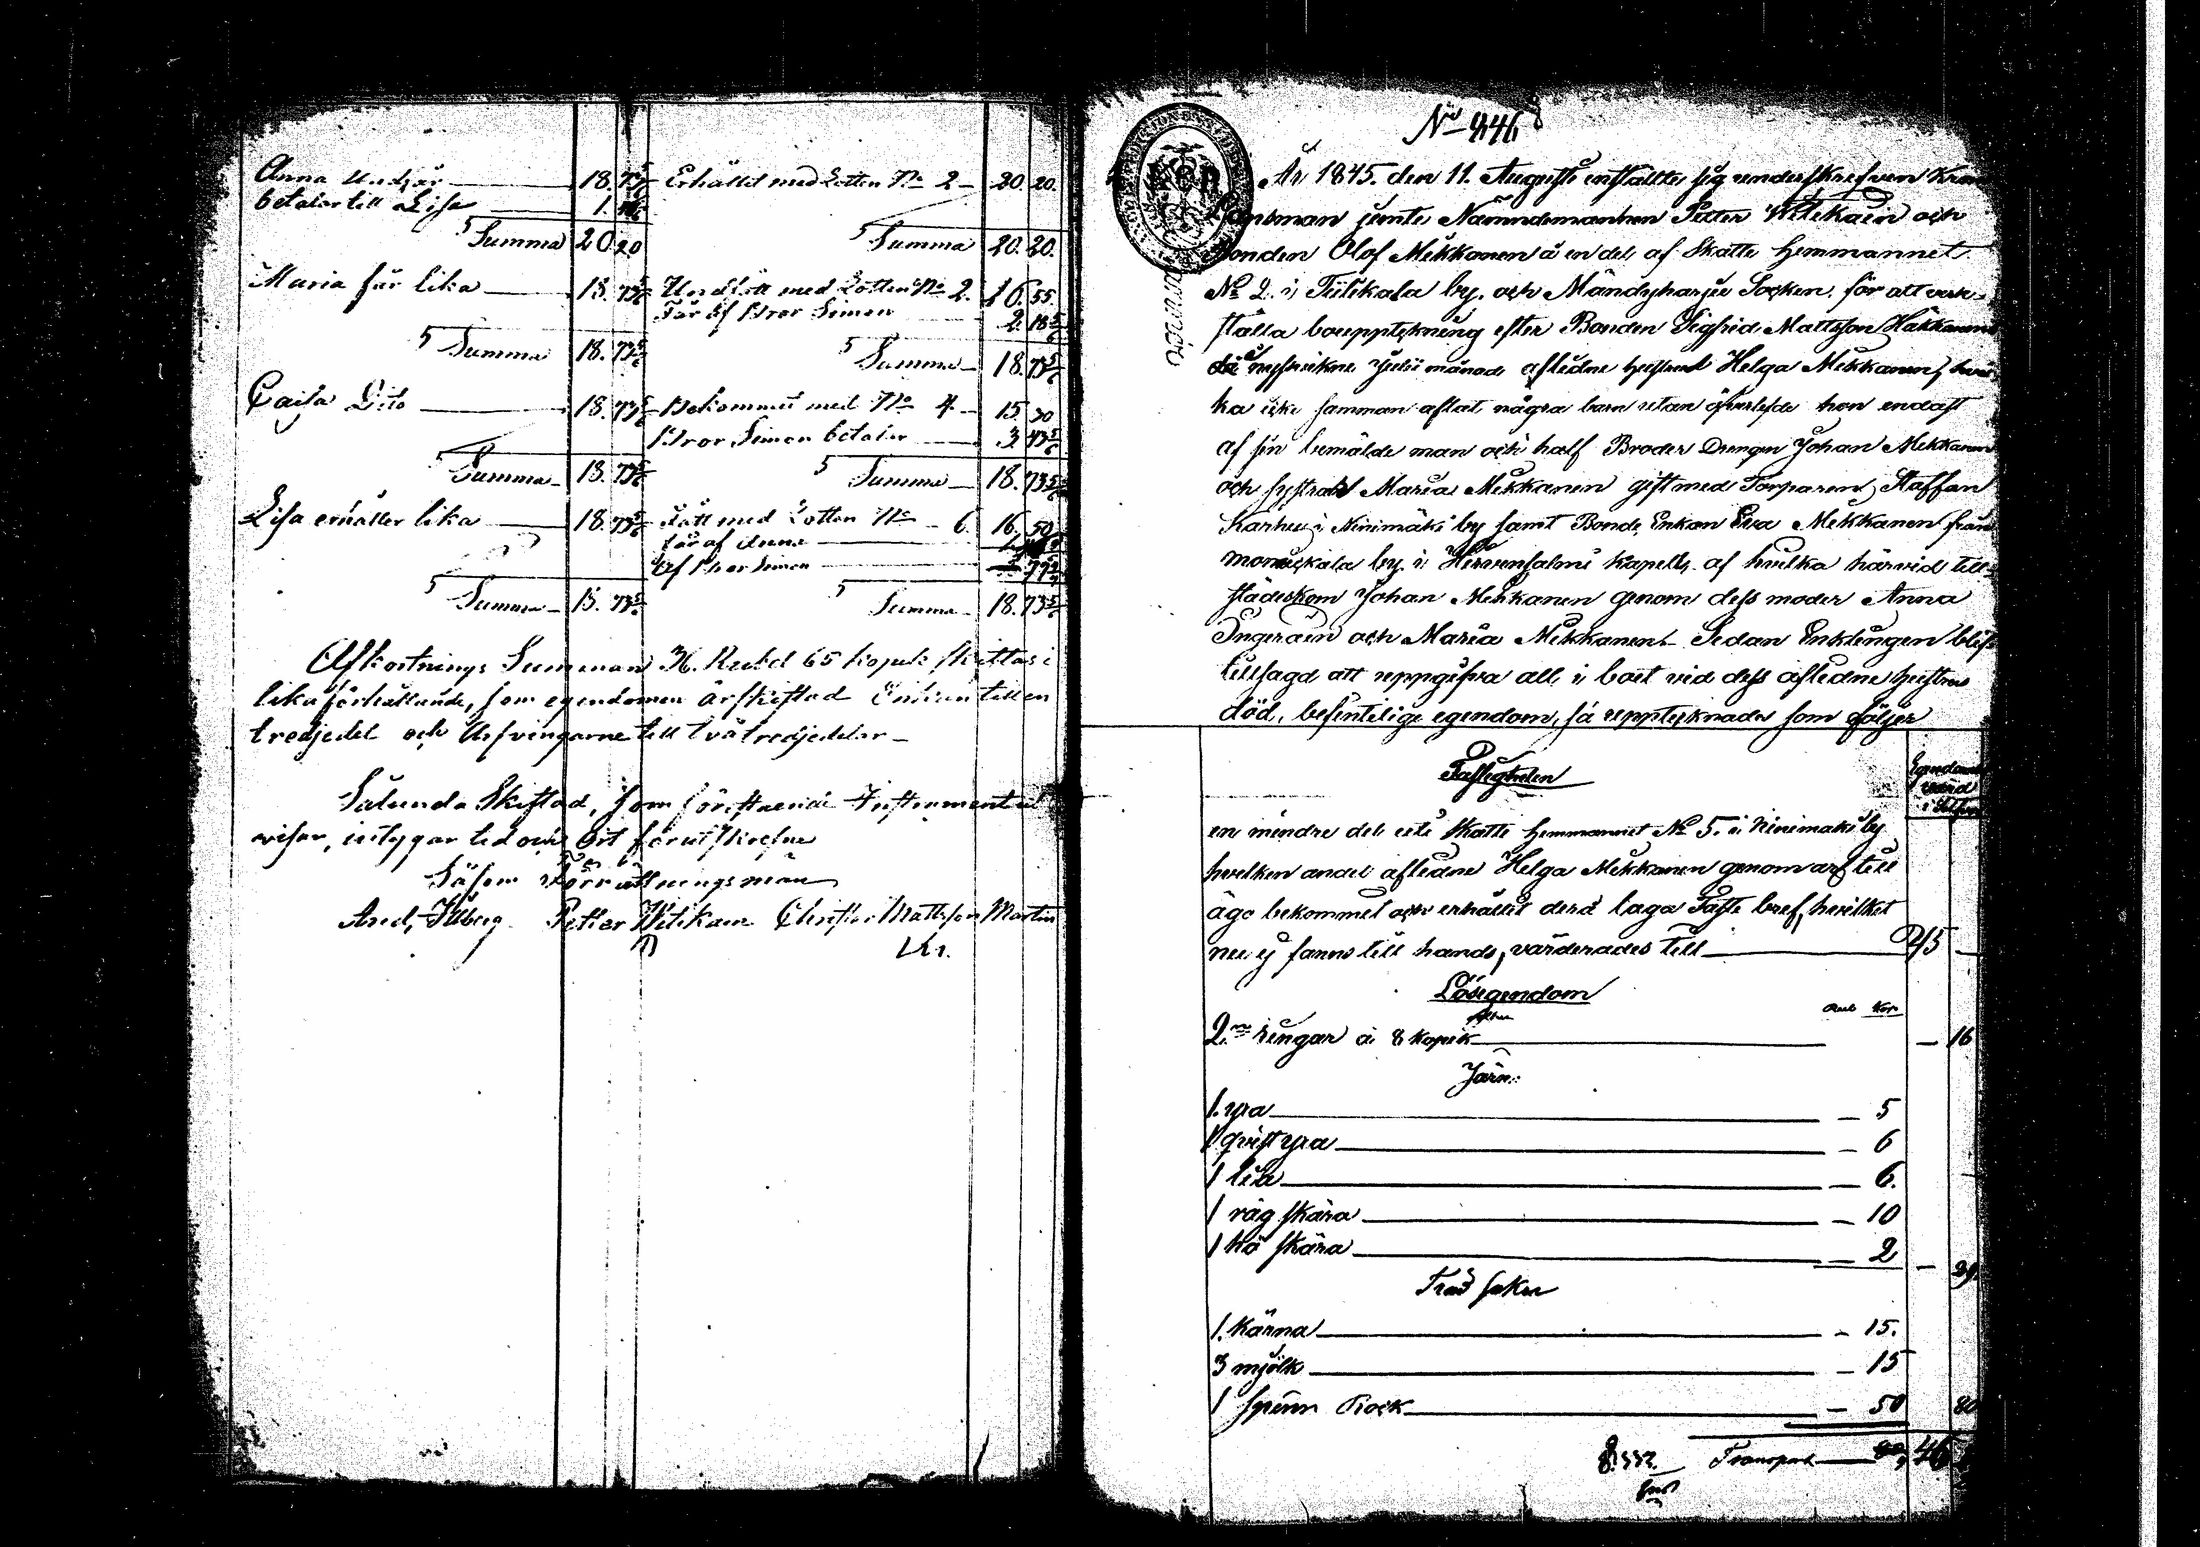 Anna undfår 18. 73 5/6 Erhållit med Lotten No 2 20. 20.
betalar till Lisa 1.
Summa 20 20 Summa 20. 20.
Maria får lika 18. 73 5/6 Undfått med Lotten No 2. 16 55
Får af Bror Simon 2. 18 5/6
Summa 18. 73 5/6 Summa 18. 73 5/6
Caisa Dito 18. 73 5/6 Bekommit med No 4 15 30
Bror Simon betalar 3 43 5/6
Summa 18. 73 5/6 Summa 18. 73 5/6
Lisa erhåller lika 18. 73 5/6 Fått med Lotten No 6 16. 50
får af Anna
af Bror Simon
Summa 18. 73 5/6 Summa 18. 73 5/6
Afkortnings Summan 36. Rubel 65 kopek skiftas i
lika förhållande, som egendomen är skiftad Enkan till en
tredjedel och Arfvingarne till två tredjedelar
Sålunda Skiftad, som förestående Instrument ut
visar, intygar tid och Ort förutskrefne
Såsom Förrättningsman
Petter Witikain Christer Mattsson Martin
No 446
År 1845. den 11. Augusti inställte sig underskrefven Krono
Länsman jemte Nämndemannen Petter Witikain och
Bonden Olof Mekkonen å en del af Skatte Hemmannet
No 2. i Tiilikala by. och Mändyharju Socken. för att verk-
ställa bouppteckning efter Bonden Sigfrid Mattsson Häkkänens
i nystvikne Julii månad afledne hustru Helga Mekkonen, hvil
ka icke samman aflat några barn utan efterlefde hon endast
af sin bemälde man och half Broder Drengen Johan Mekkonen
och systrar Maria Mekkonen gift med Torparen Staffan
Karhu i Ninimäki by samt Bonde Enkan Eva Mekkonen från
by i Hirvensalmi kapell, af hvilka härvid till-
städeskom Johan Mekkonen genom dess moder Anna
Ingeräin och Maria Mekkonen. Sedan Enklingen blef
tillsagd att uppgifva all i boet vid dess afledne hustrus
död, befintelige egendom, så upptecknades som följer
Fastigheten
Egendomens
värd
i Silfver
en mindre del uti Skatte Hemmannet No 5. i Ninimäki by
hvilken andel afledne Helga Mekkonen genom arf till
äga bekommit och erhållit derå laga Faste bref, hvilket
nu ej fanns till hands, värderades till 45 —
Lösegendom
Silfver Rub Kop
2ne ringar à 8 kopek — 16
Järn:
1. yxa — 5
1 qvist yxa — 6
1 lia — 6.
1 råg skära — 10
1 hö skära — 2 — 29.
Träd saker
1. kärna — 15.
3 mjölk — 15
1 spinn Rock — 50 80
Transport 46